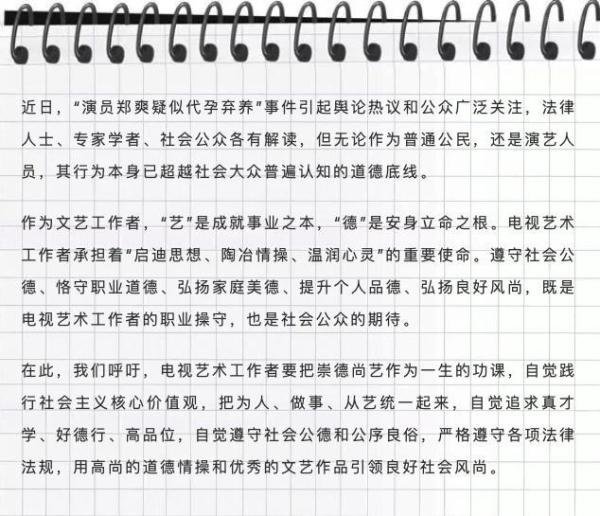 近日，“演员郑爽疑似代孕弃养”事件引起舆论热议和公众广泛关注，法律
人士、专家学者、社会公众各有解读，但无论作为普通公民，还是演艺人
员，其行为本身已超越社会大众普遍认知的道德底线。
作为文艺工作者，“艺”是成就事业之本，“德”是安身立命之根。电视艺术
工作者承担着“启迪思想、陶冶情操、温润心灵”的重要使命。遵守社会公
德、恪守职业道德、弘扬家庭美德、提升个人品德、弘扬良好风尚，既是
电视艺术工作者的职业操守，也是社会公众的期待。
在此，我们呼吁，电视艺术工作者要把崇德尚艺作为一生的功课，自觉践
行社会主义核心价值观，把为人、做事、从艺统一起来，自觉追求真才
学、好德行、高品位，自觉遵守社会公德和公序良俗，严格遵守各项法律
法规，用高尚的道德情操和优秀的文艺作品引领良好社会风尚。